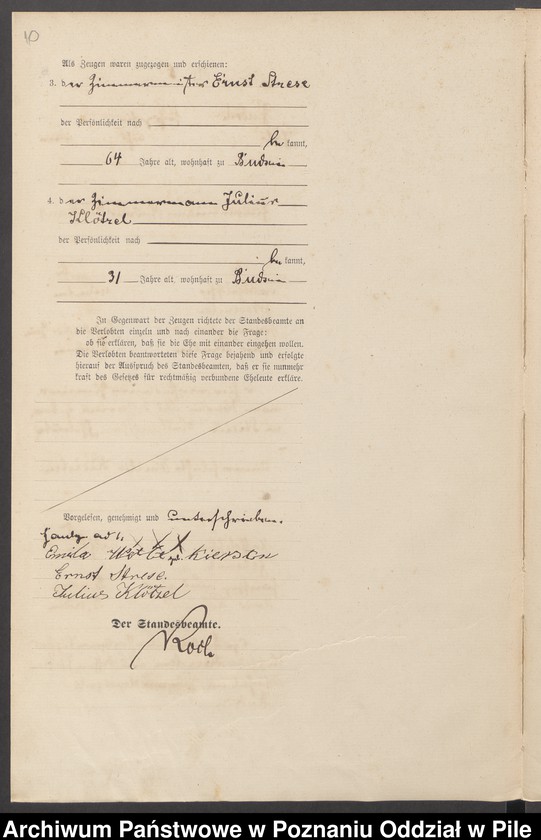 10
Als Zeugen waren zugezogen und erschienen:
3. der Zimmermeister Ernst Strese
der Persönlichkeit nach
be kannt,
64 Jahre alt, wohnhaft zu Budsin
4. der Zimmermann Julius
Klötzel
der Persönlichkeit nach
be kannt,
31 Jahre alt, wohnhaft zu Budsin
In Gegenwart der Zeugen richtete der Standesbeamte an
die Verlobten einzeln und nach einander die Frage:
ob sie erklären, daß sie die Ehe mit einander eingehen wollen.
Die Verlobten beantworteten diese Frage bejahend und erfolgte
hierauf der Ausspruch des Standesbeamten, daß er sie nunmehr
kraft des Gesetzes für rechtmäßig verbundene Eheleute erkläre.
Vorgelesen, genehmigt und unterschrieben.
XXX
Ernst Strese.
Julius Klötzel
Der Standesbeamte.
Archiwum Państwowe w Poznaniu Oddział w Pile